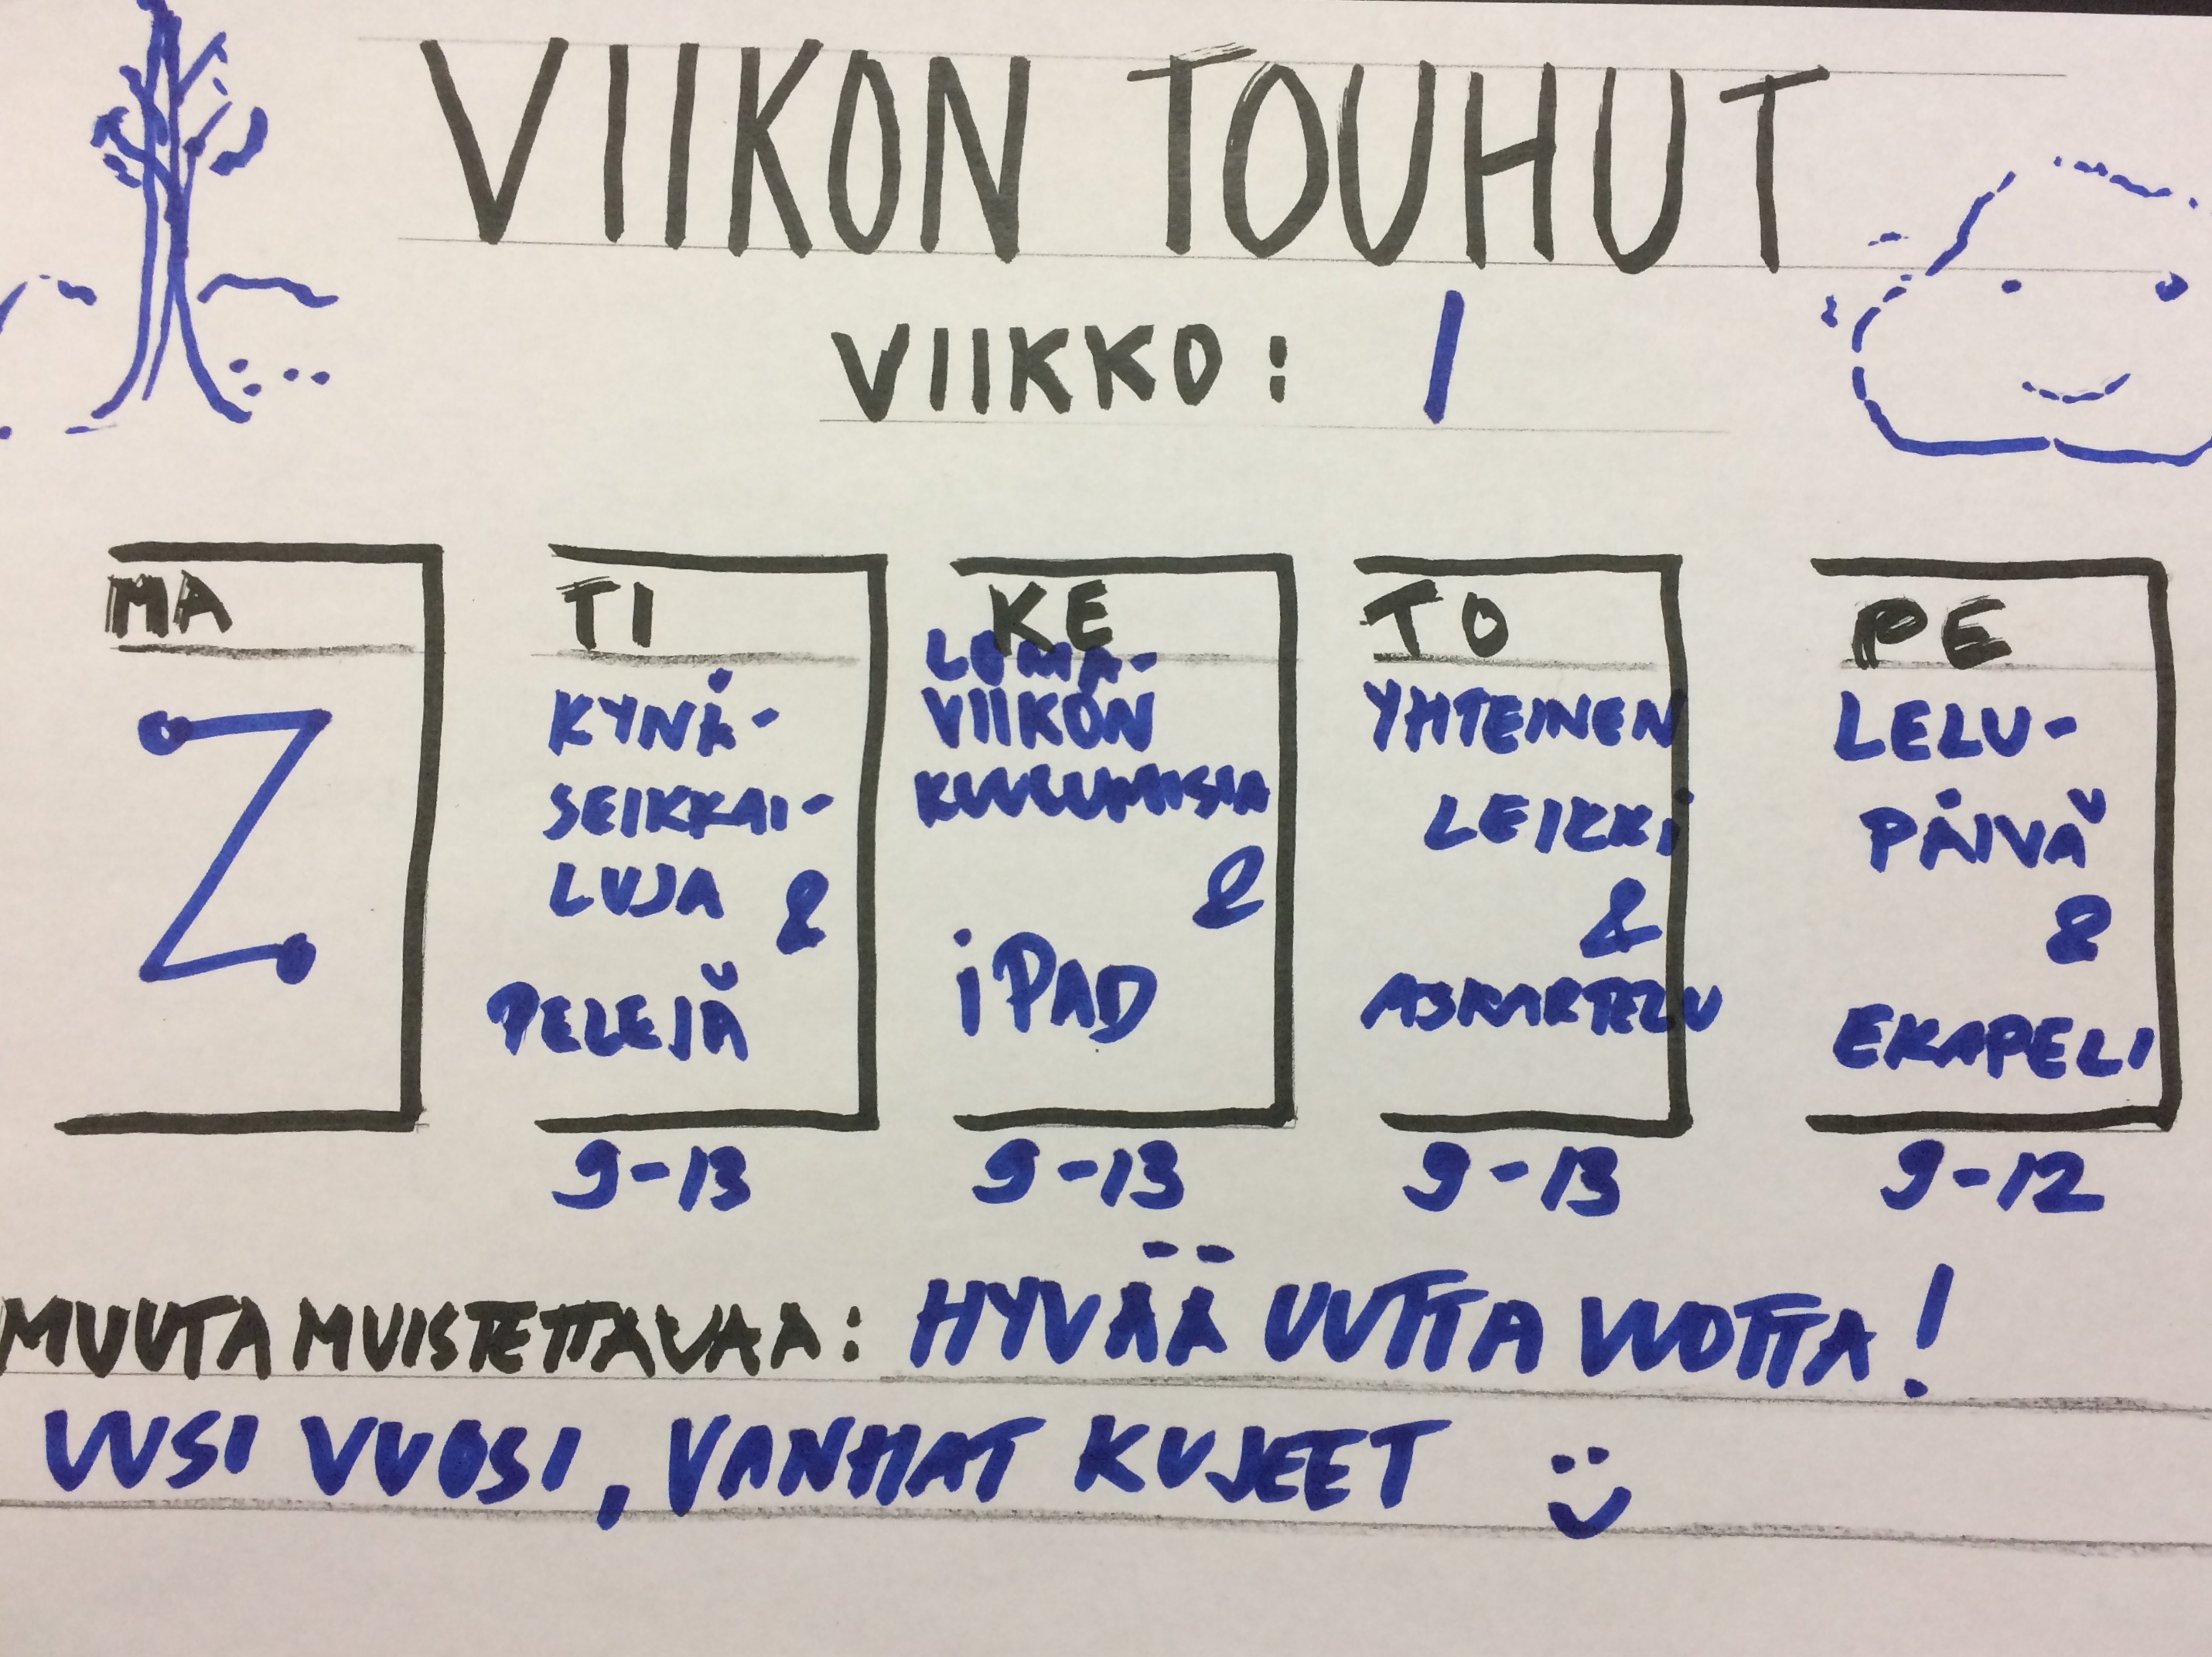 VIIKON TOUHUT
VIIKKO: 1
MA
TI
KYNÄ-
SEIKKAI-
LUJA &
PELEJÄ
9-13
KE
LOMA-
VIIKON
KUULUMISIA
&
iPAD
9-13
TO
YHTEINEN
LEIKKI
&
ASKARTELU
9-13
PE
LELU-
PÄIVÄ
&
EKAPELI
9-12
MUUTA MUISTETTAVAA: HYVÄÄ UUTTA VUOTTA!
UUSI VUOSI, VANHAT KUJEET